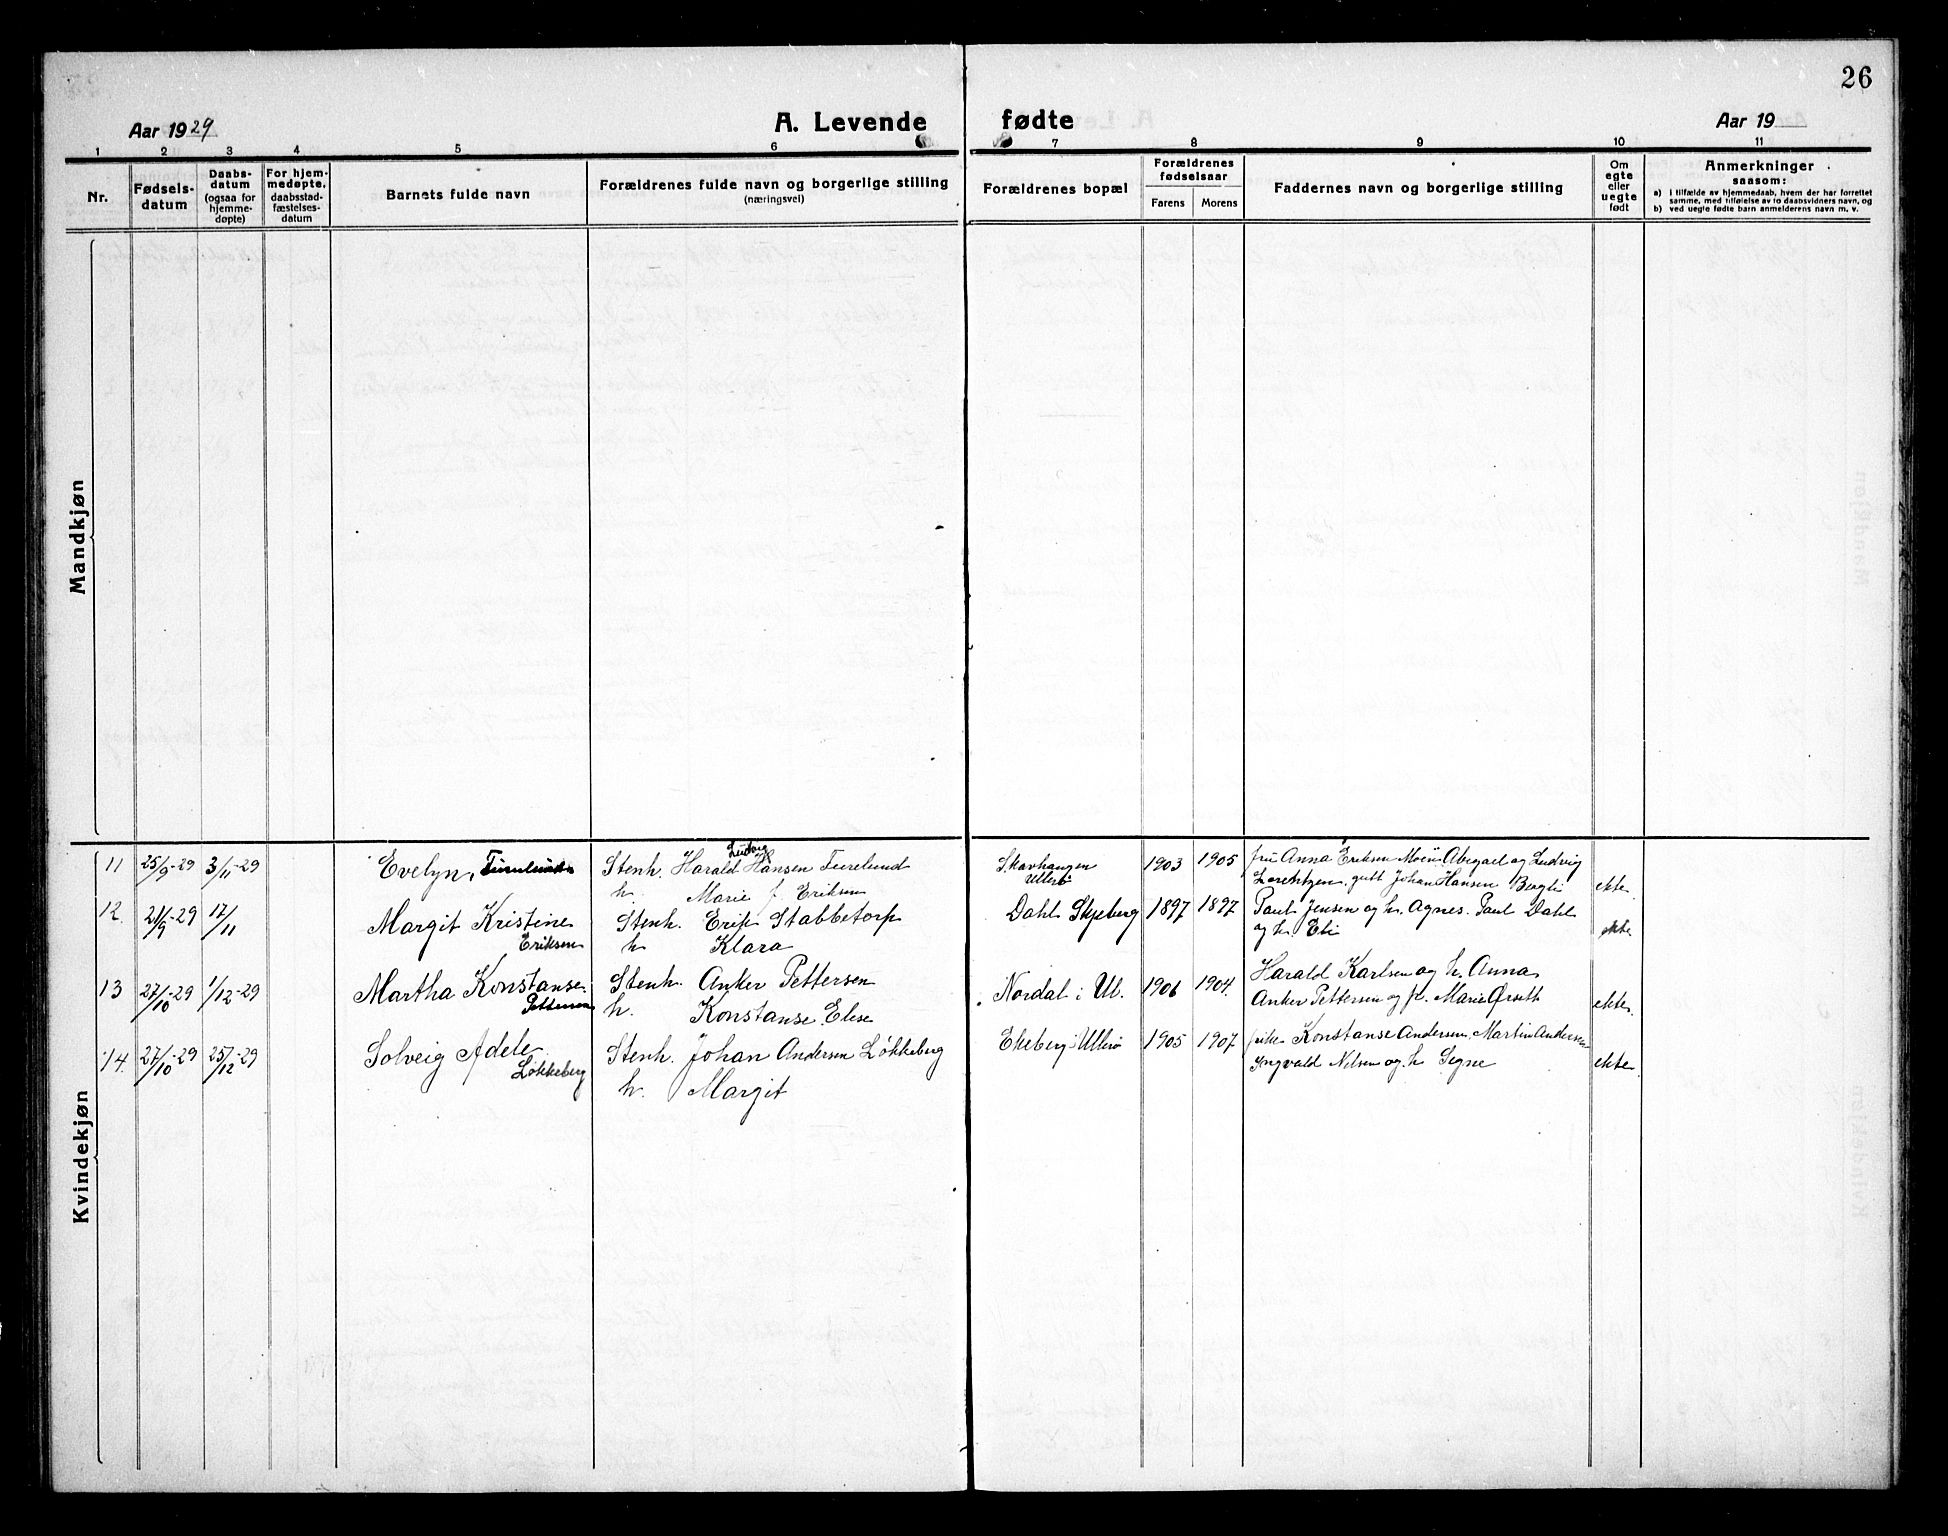 26
Aar 1929
A. Levende fødte
Aar 19
1 2 3 4 5 6 7 8 9 10 11
Nr.
Fødsels-
datum
Daabs-
datum
(ogsaa for
hjemme-
døpte)
For hjem-
medøpte,
daabsstad-
fæstelses-
datum
Barnets fulde navn
Forældrenes fulde navn og borgerlige stilling
(næringsvei)
Forældrenes bopæl
Forældrenes
fødselsaar
Farens Morens
Faddernes navn og borgerlige stilling
Om
egte
eller
uegte
født
Anmerkninger
saasom:
a) i tilfælde av hjemmedaab, hvem der har forrettet
samme, med tilføielse av to daabsvidners navn, og
b) ved uegte fødte barn anmelderens navn m. v.
Mandkjøn
Kvindekjøn
11 25/9-29 3/11-29 Evelyn, Turelund Stenh. Harald Ludvig Hansen Turelund Skavhaugen 1903 1905 fru Anna Eriksen Moen Abigael og Ludvig
h. Marie f. Eriksen Ullerø Lorentzen, gutt Johan Hansen Bergli ekte
12. 21/9-29 17/11 Margit Kristine Stenh. Erik Stabbetorp Dahl Skjeberg 1897 1897 Paul Jensen og h. Agnes. Paul Dahl
Eriksen h Klara og h. Eli ekte
13 27/10-29 1/12-29 Martha Konstanse Stenh. Anker Pettersen Nordal i Ul. 1906 1904. Harald Karlsen og h. Anna
Pettersen h. Konstanse Elise Anker Pettersen og fr. Marie Ørseth ekte.
14. 27/10-29 25/12-29 Solveig Adele Stenh. Johan Andersen Løkkeberg Ekeberg i Ullerø 1905 1907. Konstanse Andersen, Martin Andersen
Løkkeberg h. Margit Ingvald Nilsen og h Signe ekte